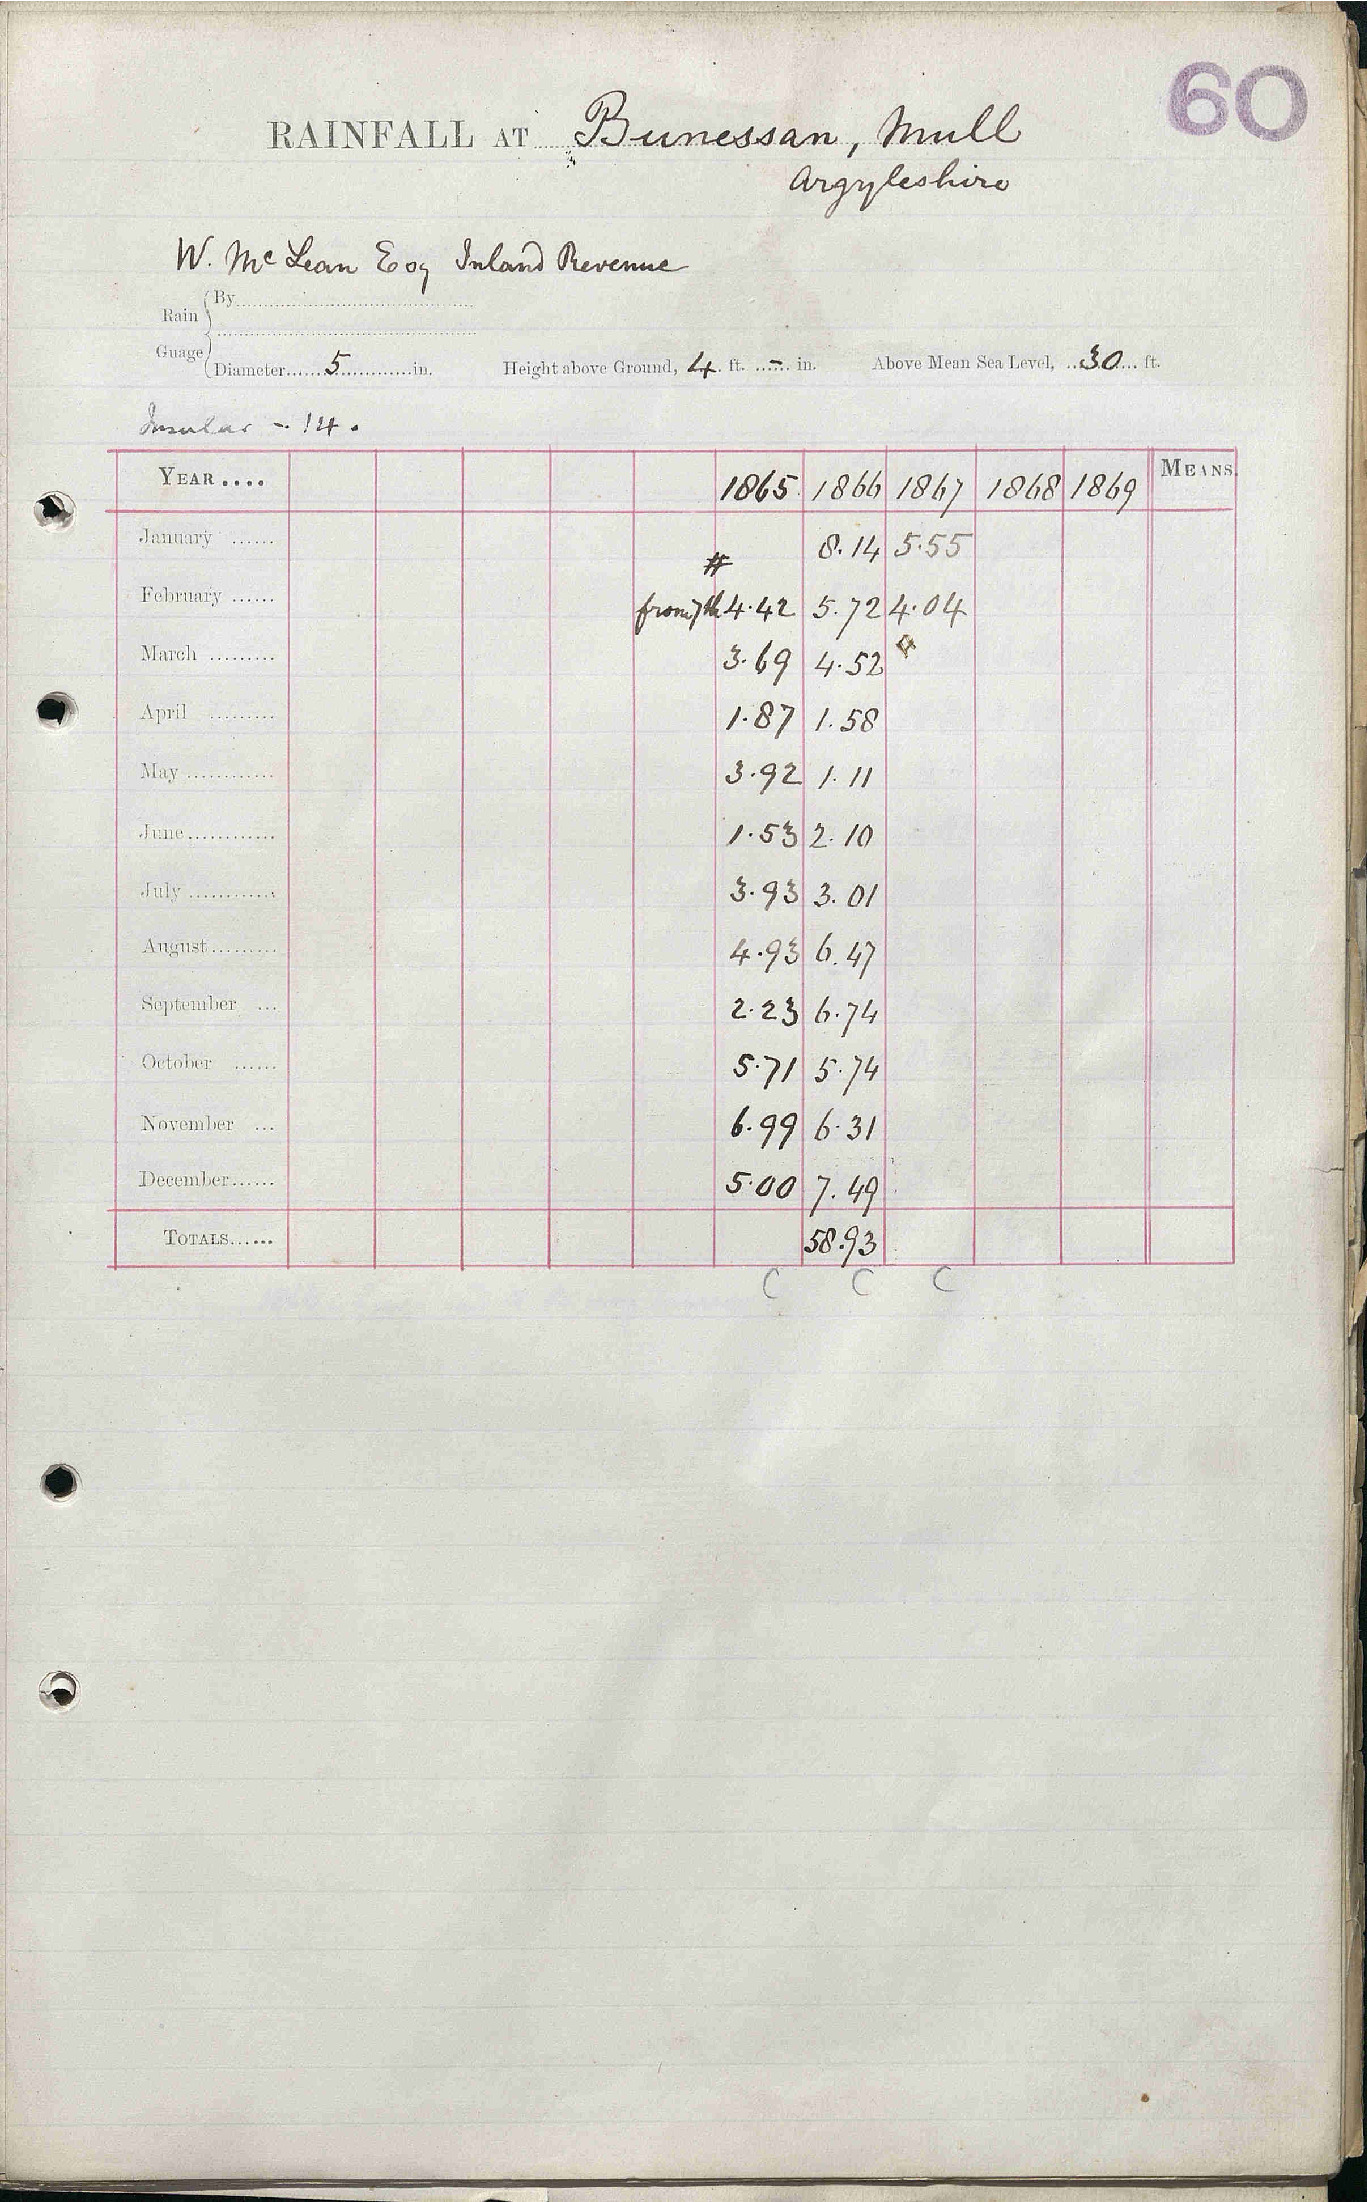 60
RAINFALL AT Bunessan, Mull
Argyleshire
W. Mc Lean Esq Inland Revenue
Rain Guage
By
Diameter 5 in. Height above Ground, 4 ft. - in. Above Mean Sea Level, 30 ft.
Insular - 14.
YEAR.... 1865 1866 1867 1868 1869 MEANS.
January ...... 8.14 5.55
#
February ...... from 7th 4.42 5.72 4.04
March ......... 3.69 4.52
April ......... 1.87 1.58
May ............ 3.92 1.11
June............ 1.53 2.10
July ............ 3.93 3.01
August......... 4.93 6.47
September ... 2.23 6.74
October ...... 5.71 5.74
November ... 6.99 6.31
December...... 5.00 7.49
TOTALS...... 58.93
C C C